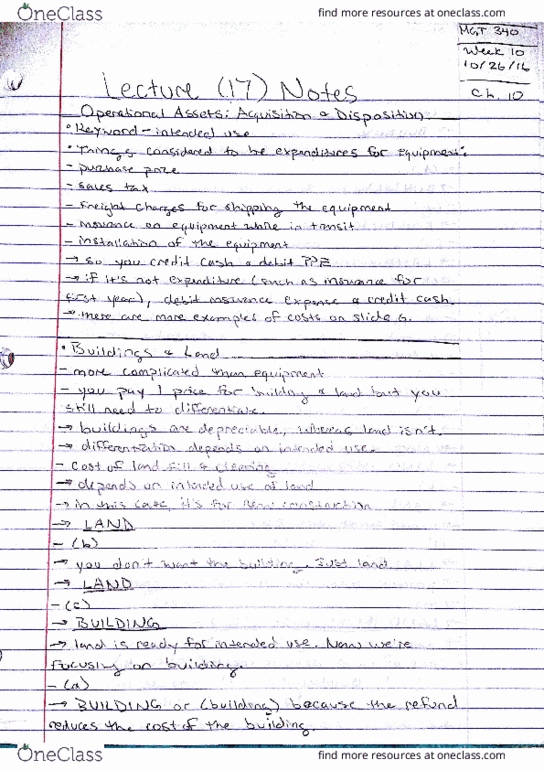 OneClass
find more resources at oneclass.com
MGT 340
Week 10
10/26/16
Ch. 10
Lecture (17) Notes
Operational Assets: Acquisition & Disposition
• Keyword - intended use
• Things considered to be expenditures for equipment:
- purchase price
- sales tax
- Freight charges for shipping the equipment
- insurance on equipment while in transit
- installation of the equipment
→ so you credit cash & debit PPE
→ if it's not expenditure (such as insurance for
first year), debit insurance expense & credit cash.
→ there are more examples of costs on slide 6.
• Buildings & Land
- more complicated than equipment
- you pay 1 price for building & land but you
still need to differentiate.
→ buildings are depreciable, whereas land isn't.
→ differentiation depends on intended use.
- Cost of land fill & clearing
→ depends on intended use of land
→ in this case, it's for new construction
→ LAND
- (b)
→ you don't want the building. Just land
→ LAND
- (c)
→ BUILDING
→ land is ready for intended use. Now we're
focusing on building.
- (a)
→ BUILDING or (building) because the refund
reduces the cost of the building.
OneClass
find more resources at oneclass.com